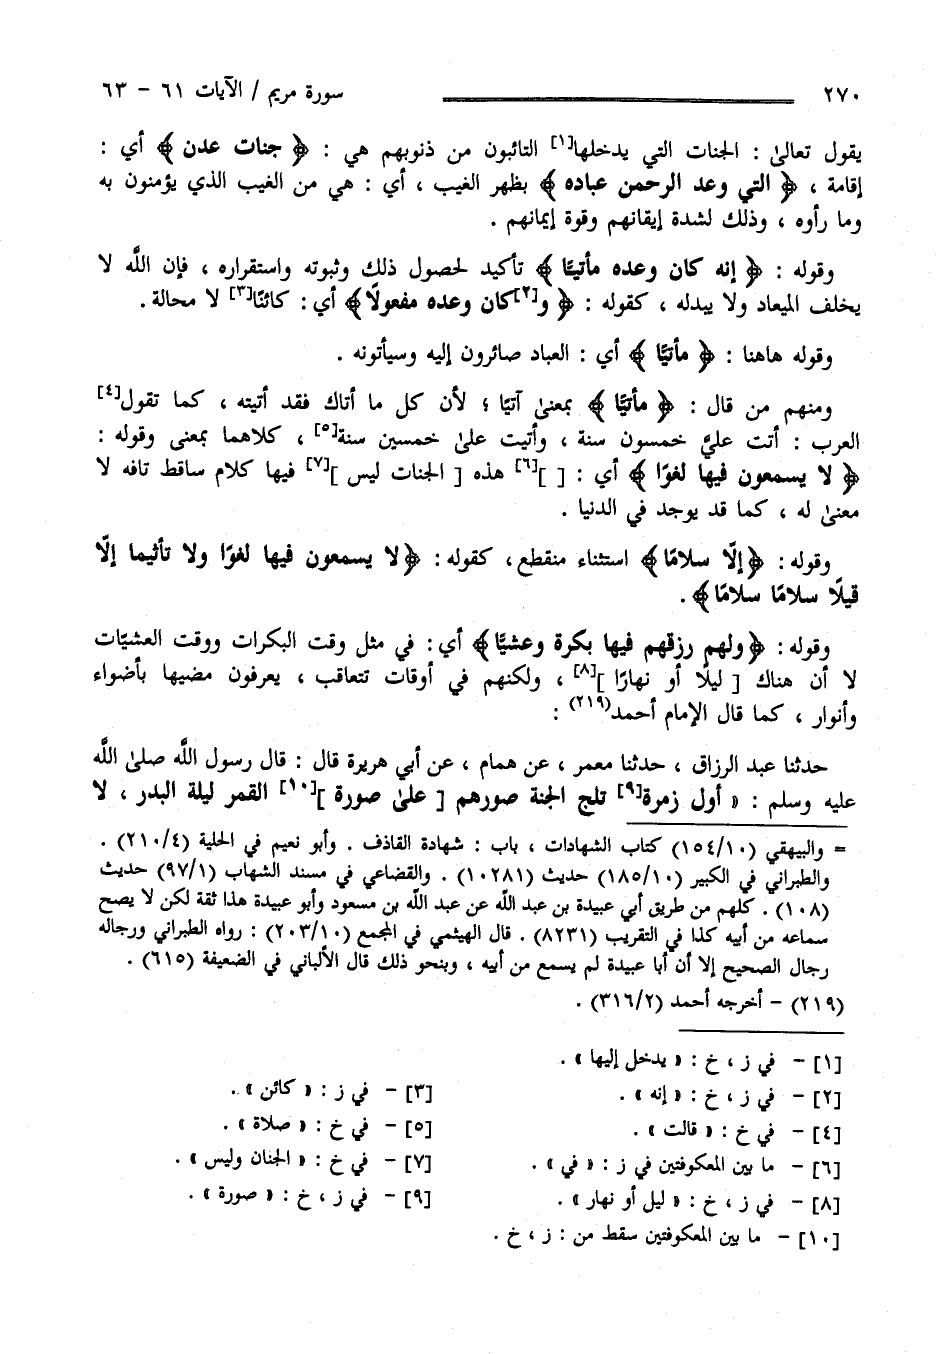 ٢٧٠ سورة مريم / الآيات ٦١ - ٦٣
يقول تعالىٰ : الجنات التي يدخلها[١] التائبون من ذنوبهم هي : ﴿ جنات عدن ﴾ أي :
إقامة ، ﴿ التي وعد الرحمن عباده ﴾ بظهر الغيب ، أي : هي من الغيب الذي يؤمنون به
وما رأوه ، وذلك لشدة إيقانهم وقوة إيمانهم .
وقوله : ﴿ إنه كان وعده مأتيًّا ﴾ تأكيد لحصول ذلك وثبوته واستقراره ، فإن اللَّه لا
يخلف الميعاد ولا يبدله ، كقوله : ﴿ و[٢]كان وعده مفعولًا ﴾ أي : كائنًا[٣] لا محالة .
وقوله هاهنا : ﴿ مأتيًّا ﴾ أي : العباد صائرون إليه وسيأتونه .
ومنهم من قال : ﴿ مأتيًّا ﴾ بمعنىٰ آتيًا ؛ لأن كل ما أتاك فقد أتيته ، كما تقول[٤]
العرب : أتت عليَّ خمسون سنة ، وأتيت علىٰ خمسين سنة[٥] ، كلاهما بمعنى وقوله :
﴿ لا يسمعون فيها لغوًا ﴾ أي : [ ][٦] هذه [ الجنات ليس ][٧] فيها كلام ساقط تافه لا
معنىٰ له ، كما قد يوجد في الدنيا .
وقوله : ﴿ إلَّا سلامًا ﴾ استثناء منقطع ، كقوله : ﴿ لا يسمعون فيها لغوًا ولا تأثيما إلَّا
قيلًا سلامًا سلامًا ﴾ .
وقوله : ﴿ ولهم رزقهم فيها بكرة وعشيًّا ﴾ أي : في مثل وقت البكرات ووقت العشيّات
لا أن هناك [ ليلًا أو نهارًا ][٨] ، ولكنهم في أوقات تتعاقب ، يعرفون مضيها بأضواء
وأنوار ، كما قال الإمام أحمد(٢١٩) :
حدثنا عبد الرزاق ، حدثنا معمر ، عن همام ، عن أبي هريرة قال : قال رسول اللَّه صلىٰ اللَّه
عليه وسلم : « أول زمرة[٩] تلج الجنة صورهم [ علىٰ صورة ][١٠] القمر ليلة البدر ، لا
= والبيهقي (١٥٤/١٠) كتاب الشهادات ، باب : شهادة القاذف . وأبو نعيم في الحلية (٢١٠/٤) .
والطبراني في الكبير (١٨٥/١٠) حديث (١٠٢٨١) . والقضاعي في مسند الشهاب (٩٧/١) حديث
(١٠٨) . كلهم من طريق أبي عبيدة بن عبد اللَّه عن عبد اللَّه بن مسعود وأبو عبيدة هذا ثقة لكن لا يصح
سماعه من أبيه كذا في التقريب (٨٢٣١) . قال الهيثمي في المجمع (٢٠٣/١٠) : رواه الطبراني ورجاله
رجال الصحيح إلا أن أبا عبيدة لم يسمع من أبيه ، وبنحو ذلك قال الألباني في الضعيفة (٦١٥) .
(٢١٩) - أخرجه أحمد (٣١٦/٢) .
[١] - في ز ، خ : « يدخل إليها » .
[٢] - في ز ، خ : « إنه » . [٣] - في ز : « كائن » .
[٤] - في خ : « قالت » . [٥] - في خ : « صلاة » .
[٦] - ما بين المعكوفتين في ز : « في » . [٧] - في خ : « الجنان وليس » .
[٨] - في ز ، خ : « ليل أو نهار » . [٩] - في ز ، خ : « صورة » .
[١٠] - ما بين المعكوفتين سقط من : ز ، خ .